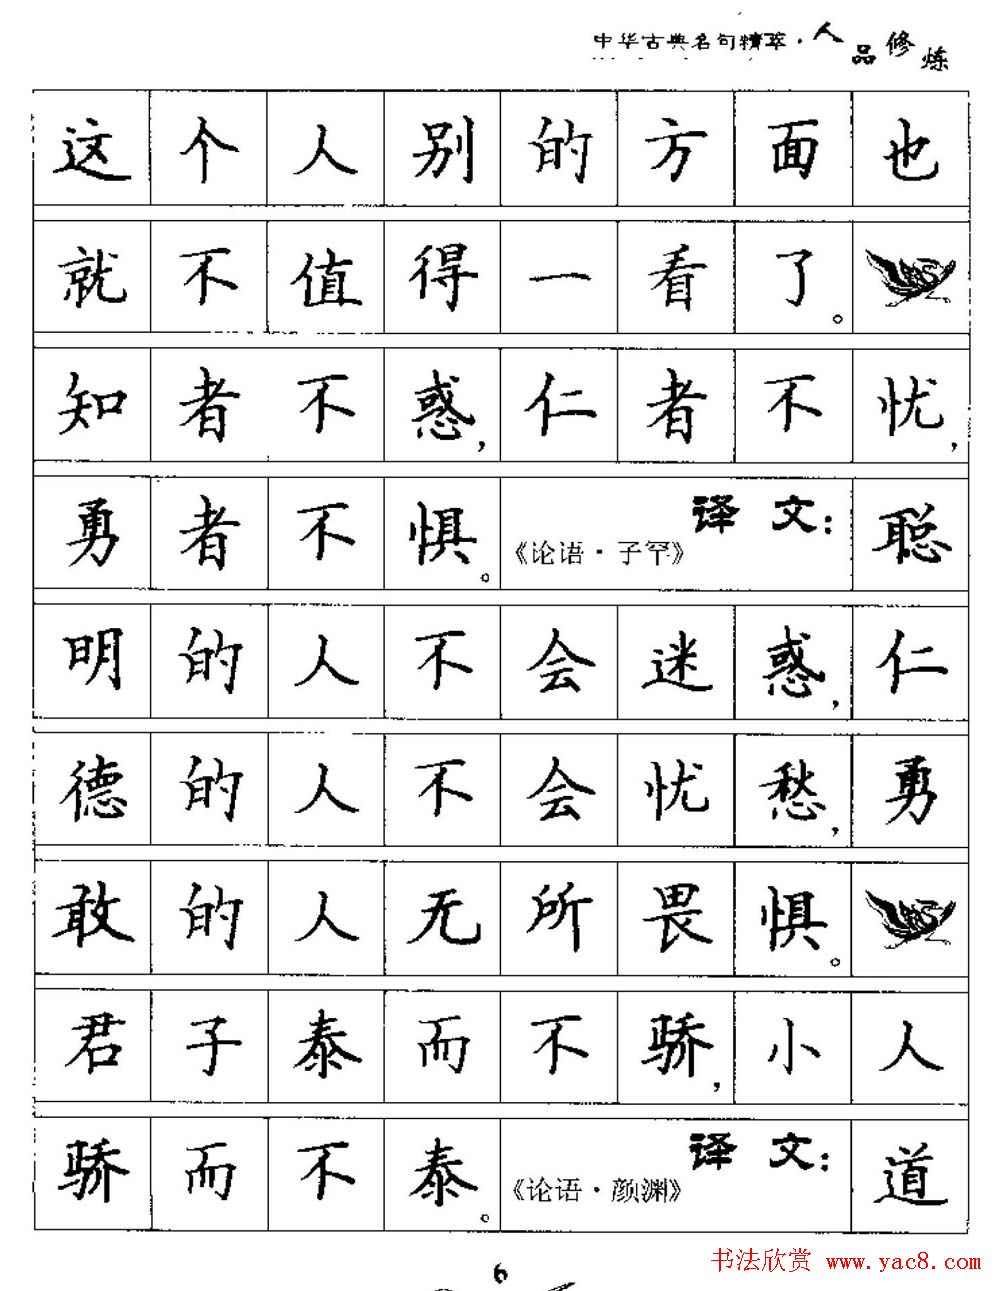 中华古典名句精萃·人品修炼
这个人别的方面也
就不值得一看了。
知者不惑，仁者不忧，
勇者不惧。《论语·子罕》译文：聪
明的人不会迷惑，仁
德的人不会忧愁，勇
敢的人无所畏惧。
君子泰而不骄，小人
骄而不泰。《论语·颜渊》译文：道
6
书法欣赏 www.yac8.com